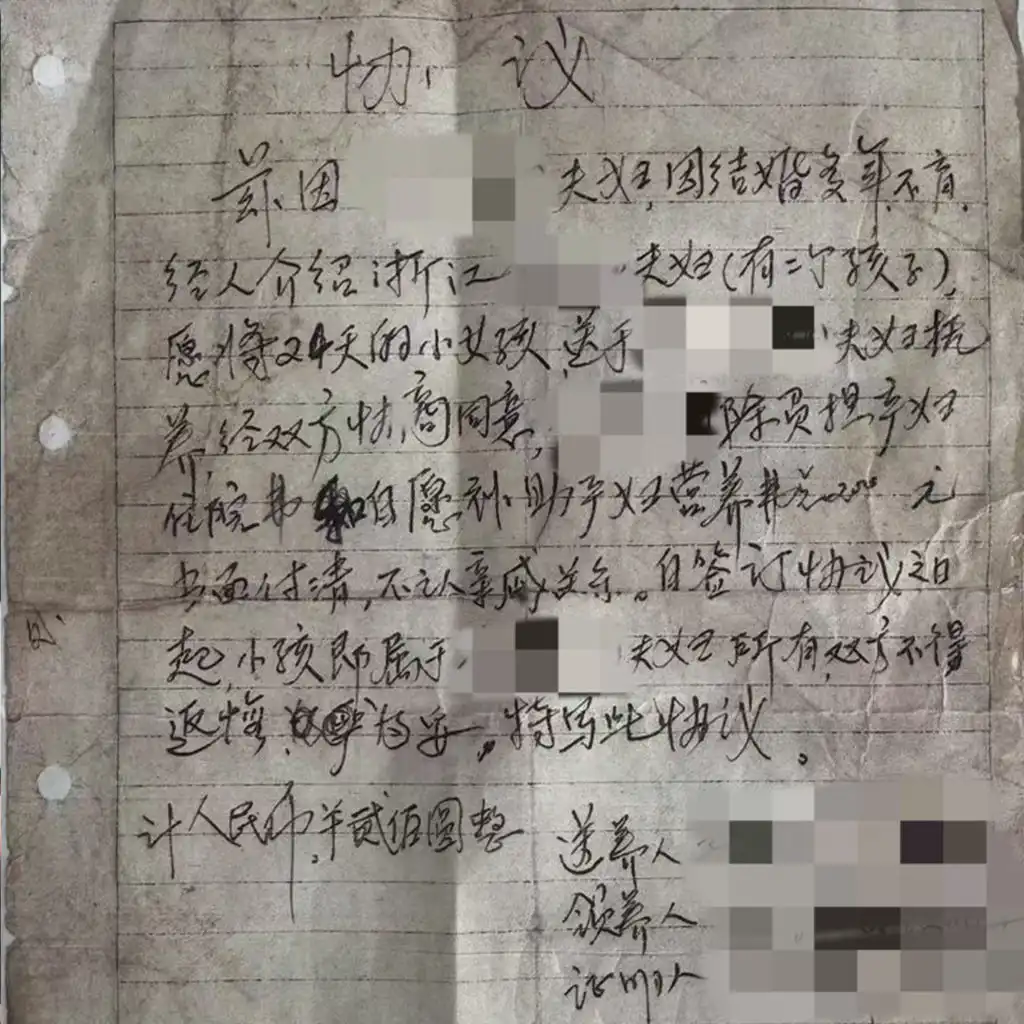 协议
兹因 夫妇,因结婚多年不育,
经人介绍浙江 夫妇(有二个孩子),
愿将24天的小女孩,送于 夫妇抚
养,经双方协商同意, 除负担产妇
住院费和自愿补助产妇营养费 元
当面付清,不认亲戚关系。自签订协议之日
起,小孩即属于 夫妇所有,双方不得
返悔 为妥。特写此协议。
计人民币,洋贰佰圆整
送养人
领养人
证明人